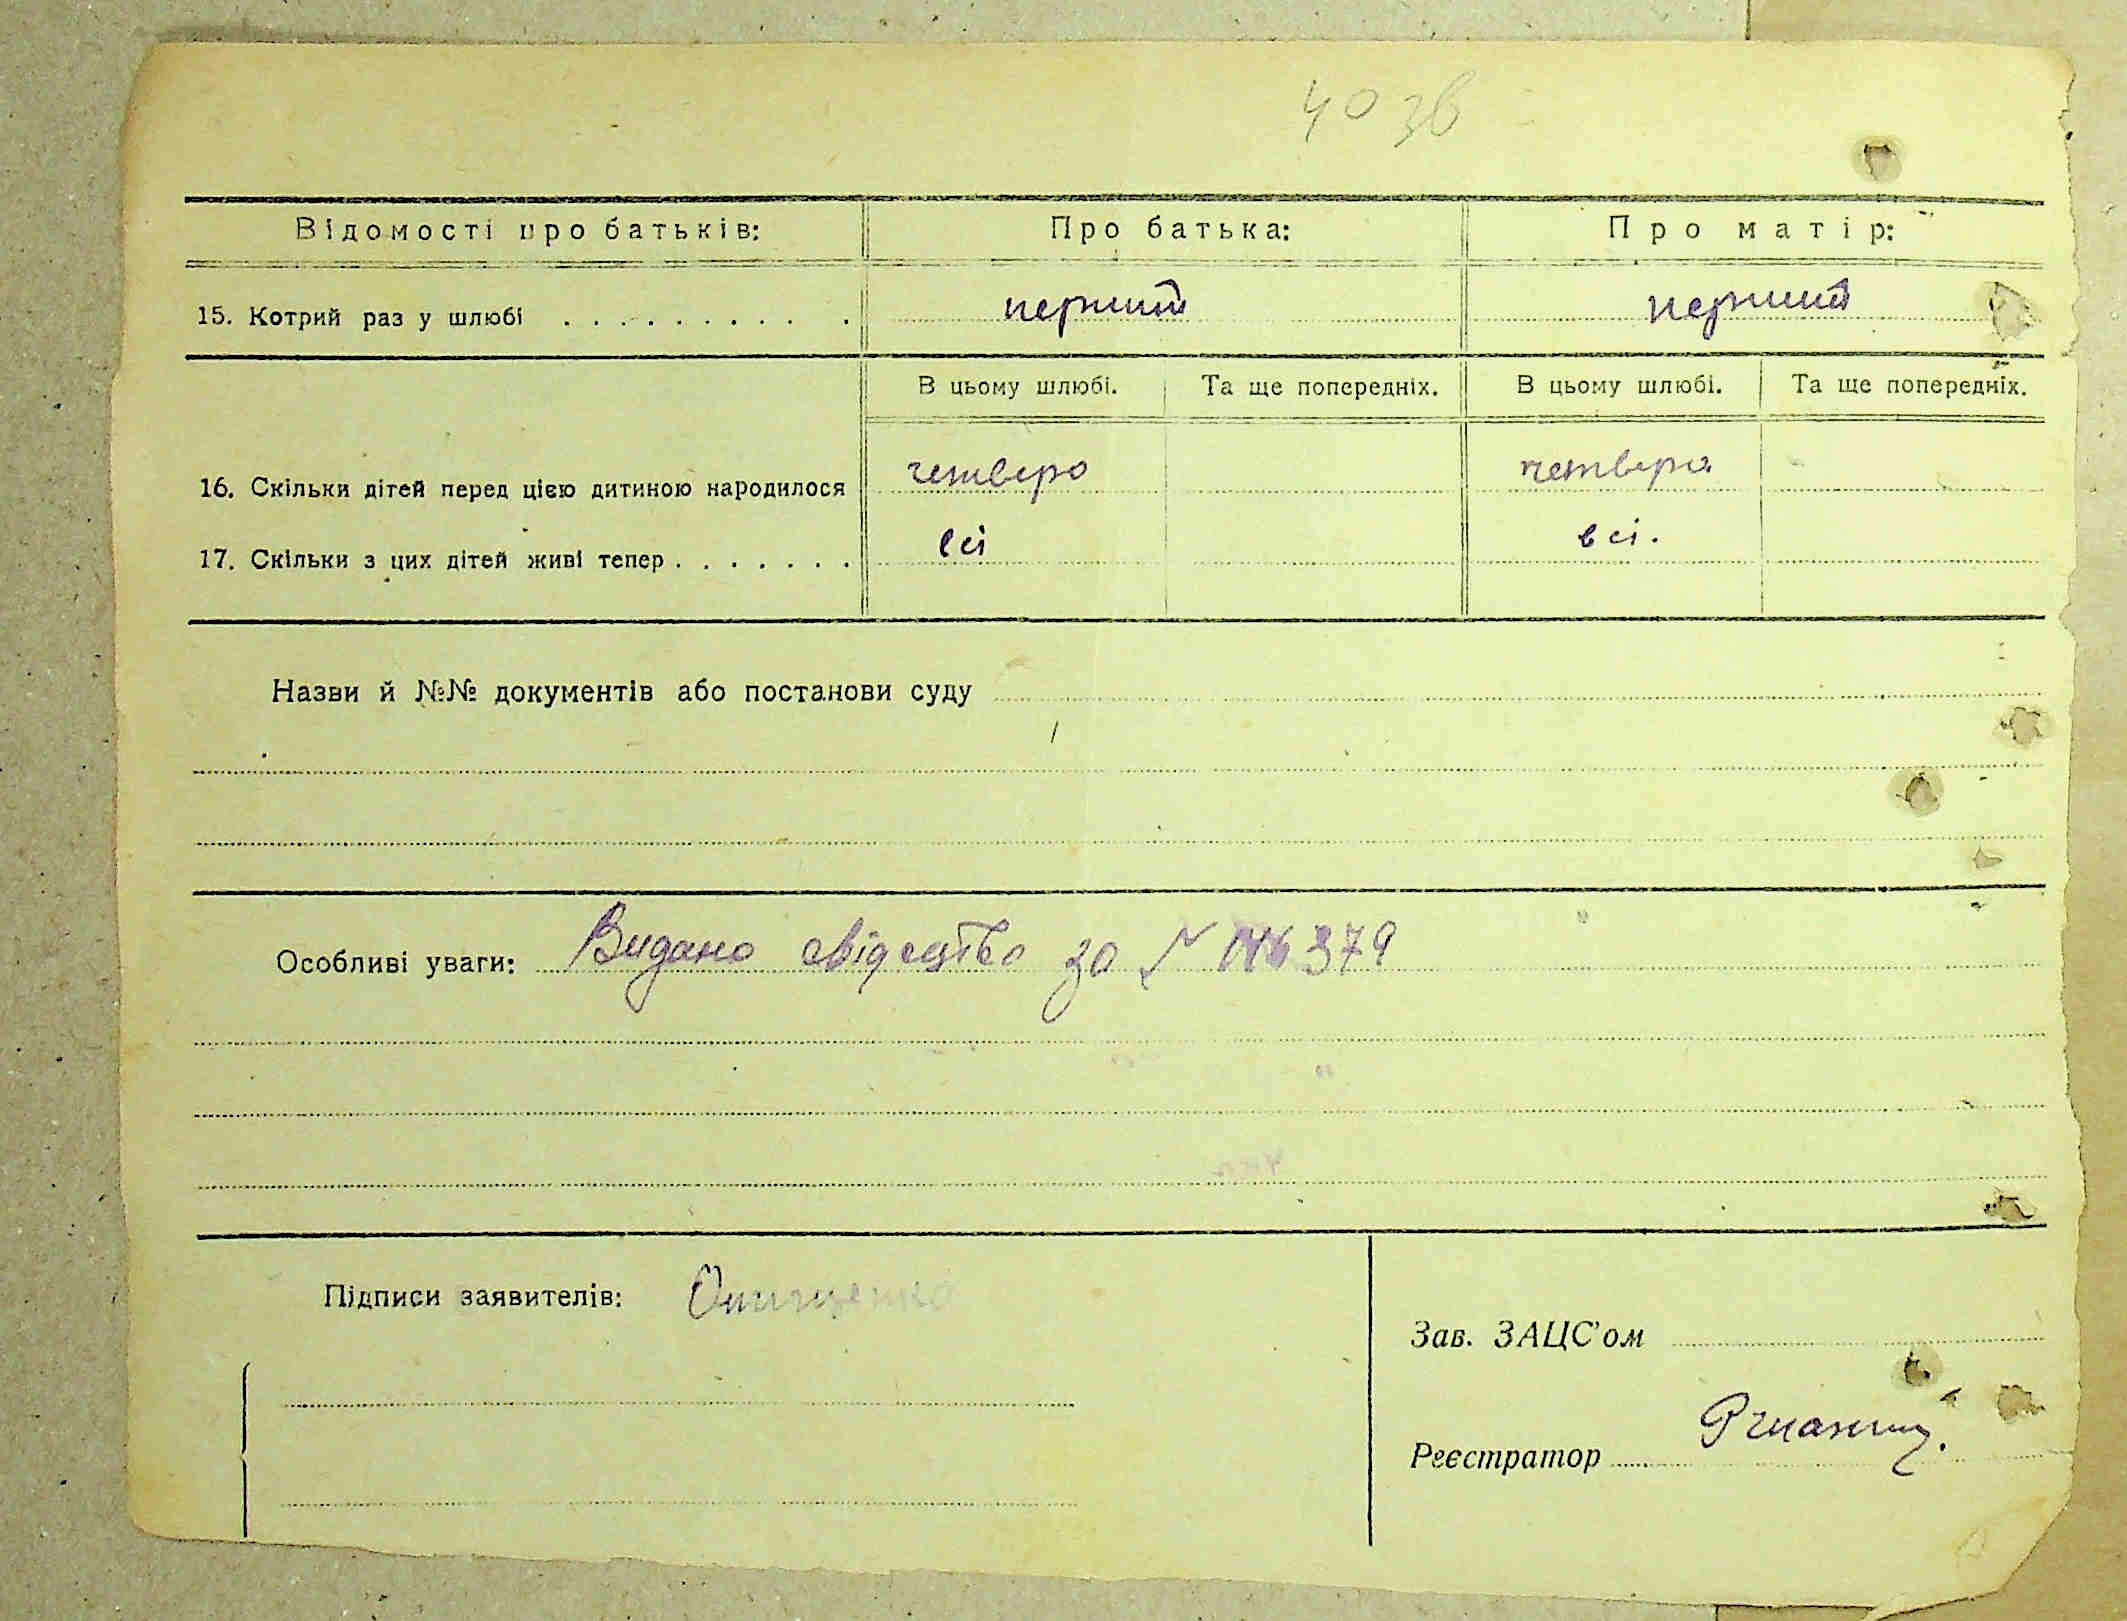 40 зв
Відомості про батьків: Про батька: Про матір:
15. Котрий раз у шлюбі . . . . . . . . . . . перший перший
В цьому шлюбі. Та ще попередніх. В цьому шлюбі. Та ще попередніх.
16. Скільки дітей перед цією дитиною народилося четверо четверо
17. Скільки з цих дітей живі тепер . . . . . . . всі всі.
Назви й №№ документів або постанови суду
Особливі уваги: Видано свідецтво за № 379
Підписи заявителів: Онищенко
Зав. ЗАЦС'ом
Реєстратор